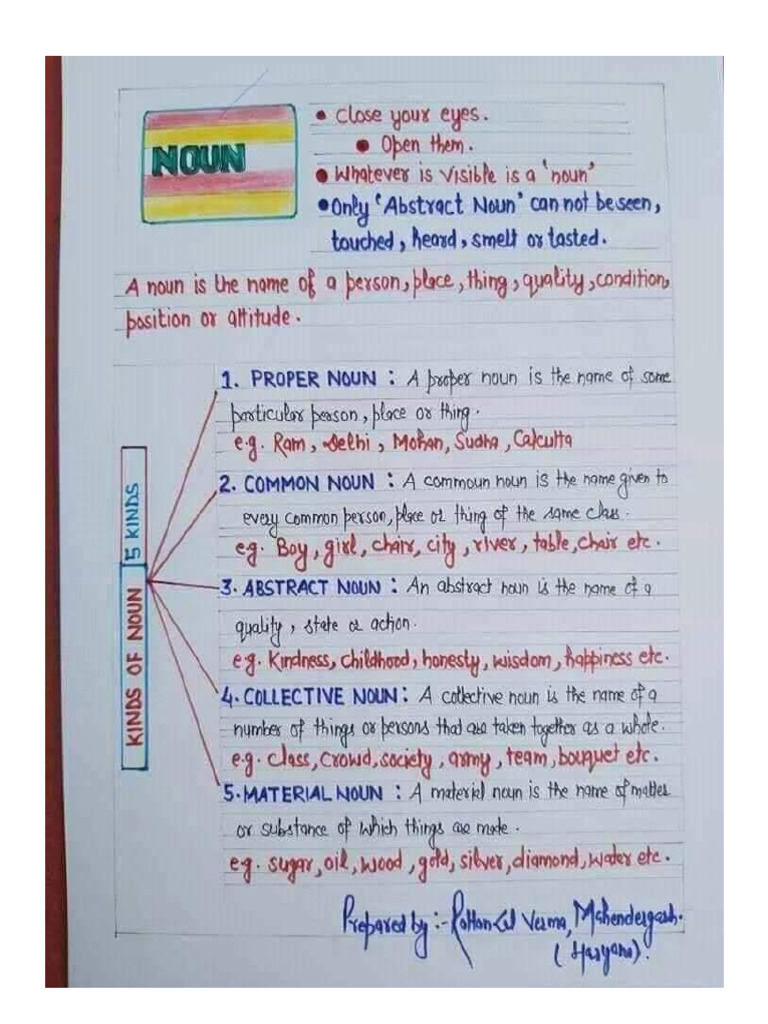 NOUN
• Close your eyes.
• Open them.
• Whatever is visible is a 'noun'
• Only 'Abstract Noun' can not be seen,
touched, heard, smelt or tasted.
A noun is the name of a person, place, thing, quality, condition,
position or attitude.
KINDS OF NOUN 5 KINDS
1. PROPER NOUN : A proper noun is the name of some
particular person, place or thing.
e.g. Ram, Delhi, Mohan, Sudha, Calcutta
2. COMMON NOUN : A commoun noun is the name given to
every common person, place or thing of the same class.
eg. Boy, girl, chair, city, river, table, chair etc.
3. ABSTRACT NOUN : An abstract noun is the name of a
quality, state or action.
e.g. Kindness, childhood, honesty, wisdom, happiness etc.
4. COLLECTIVE NOUN : A collective noun is the name of a
number of things or persons that are taken together as a whole.
e.g. Class, Crowd, society, army, team, bouquet etc.
5. MATERIAL NOUN : A material noun is the name of matter
or substance of which things are made.
eg. sugar, oil, wood, gold, silver, diamond, water etc.
Prepared by :- Verma, Mahendergarh.
(Haryana).